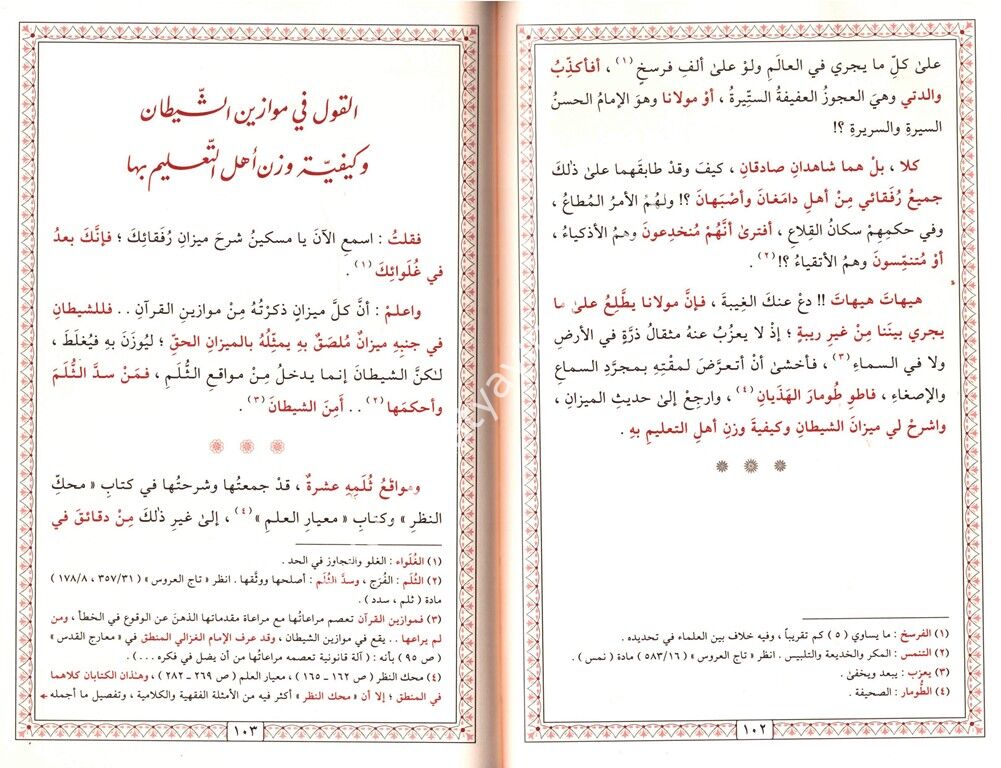 علىٰ كلِّ ما يجري في العالَمِ ولوْ علىٰ ألفِ فرسخٍ (١) ، أفأكذِّبُ
والدتي وهيَ العجوزُ العفيفةُ الستِّيرةُ ، أوْ مولانا وهوَ الإمامُ الحسنُ
السيرةِ والسريرةِ ؟!
كلا ، بلْ هما شاهدانِ صادقانِ ، كيفَ وقدْ طابقَهما علىٰ ذٰلكَ
جميعُ رُفَقائي مِنْ أهلِ دامَغانَ وأصْبَهانَ ؟! ولهُمُ الأمرُ المُطاعُ ،
وفي حكمِهِمْ سكانُ القِلاعِ ، أفترىٰ أنَّهُمْ مُنخدِعونَ وهمُ الأذكياءُ ،
أوْ مُتنمِّسونَ وهمُ الأتقياءُ ؟! (٢) .
هيهاتَ هيهاتَ !! دعْ عنكَ الغِيبةَ ، فإنَّ مولانا يطَّلِعُ علىٰ ما
يجري بينَنا مِنْ غيرِ ريبةٍ ؛ إذْ لا يعزُبُ عنهُ مثقالُ ذرَّةٍ في الأرضِ
ولا في السماءِ (٣) ، فأخشىٰ أنْ أتعرَّضَ لمقْتِهِ بمجرَّدِ السماعِ
والإصغاءِ ، فاطوِ طُومارَ الهَذَيانِ (٤) ، وارجِعْ إلىٰ حديثِ الميزانِ ،
واشرحْ لي ميزانَ الشيطانِ وكيفيةَ وزنِ أهلِ التعليمِ بهِ .
(١) الفرسخ : ما يساوي ( ٥ ) كم تقريباً ، وفيه خلاف بين العلماء في تحديده .
(٢) التنمس : المكر والخديعة والتلبيس . انظر « تاج العروس » ( ٥٨٣/١٦ ) مادة ( نمس ) .
(٣) يعزب : يبعد ويخفىٰ .
(٤) الطُّومار : الصحيفة .
١٠٢
القول في موازين الشيطان
وكيفيّة وزن أهل التّعليم بها
فقلتُ : اسمعِ الآنَ يا مسكينُ شرحَ ميزانِ رُفَقائِكَ ؛ فإنَّكَ بعدُ
في غُلَوائِكَ (١) .
واعلمْ : أنَّ كلَّ ميزانٍ ذكرْتُهُ مِنْ موازينِ القرآنِ .. فللشيطانِ
في جنبِهِ ميزانٌ مُلصَقٌ بهِ يمثِّلُهُ بالميزانِ الحقِّ ؛ ليُوزَنَ بهِ فيُغلَطَ ،
لٰكنَّ الشيطانَ إنما يدخلُ مِنْ مواقعِ الثُّلَمِ ، فمَنْ سدَّ الثُّلَمَ
وأحكمَها (٢) .. أَمِنَ الشيطانَ (٣) .
ومواقعُ ثُلَمِهِ عشرةٌ ، قدْ جمعتُها وشرحتُها في كتابِ « محكِّ
النظرِ » وكتابِ « معيارِ العلمِ » (٤) ، إلىٰ غيرِ ذٰلكَ مِنْ دقائقَ في
(١) الغُلَواء : الغلو والتجاوز في الحد .
(٢) الثُّلَم : الفُرَج ، وسدَّ الثُّلَم : أصلحها ووثَّقها . انظر « تاج العروس » ( ٣٥٧/٣١ ، ١٧٨/٨ )
مادة ( ثلم ، سدد ) .
(٣) فموازين القرآن تعصم مراعاتُها مع مراعاة مقدماتها الذهنَ عن الوقوع في الخطأ ، ومن
لم يراعها .. يقع في موازين الشيطان ، وقد عرف الإمام الغزالي المنطق في « معارج القدس »
( ص ٩٥ ) بأنه : ( آلة قانونية تعصمه مراعاتُها من أن يضل في فكره ... ) .
(٤) محك النظر ( ص ١٦٢ ـ ١٦٥ ) ، معيار العلم ( ص ٢٦٩ ـ ٢٨٢ ) ، وهٰذان الكتابان كلاهما
في المنطق ؛ إلا أن « محك النظر » أكثر فيه من الأمثلة الفقهية والكلامية ، وتفصيل ما أجمله
١٠٣